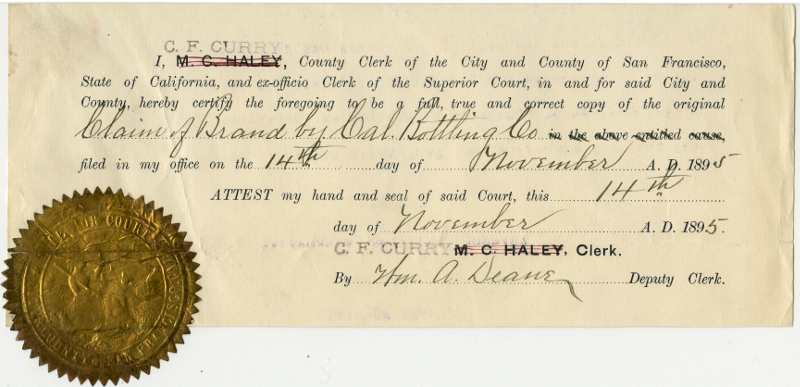 C. F. CURRY
I, M. C. HALEY, County Clerk of the City and County of San Francisco,
State of California, and ex-officio Clerk of the Superior Court, in and for said City and
County, hereby certify the foregoing to be a full, true and correct copy of the original
Claim of Brand by Cal. Bottling Co in the above entitled cause,
filed in my office on the 14th day of November A. D. 1895
ATTEST my hand and seal of said Court, this 14th
day of November A. D. 1895.
C. F. CURRY M. C. HALEY, Clerk.
By Wm. A. Deane Deputy Clerk.